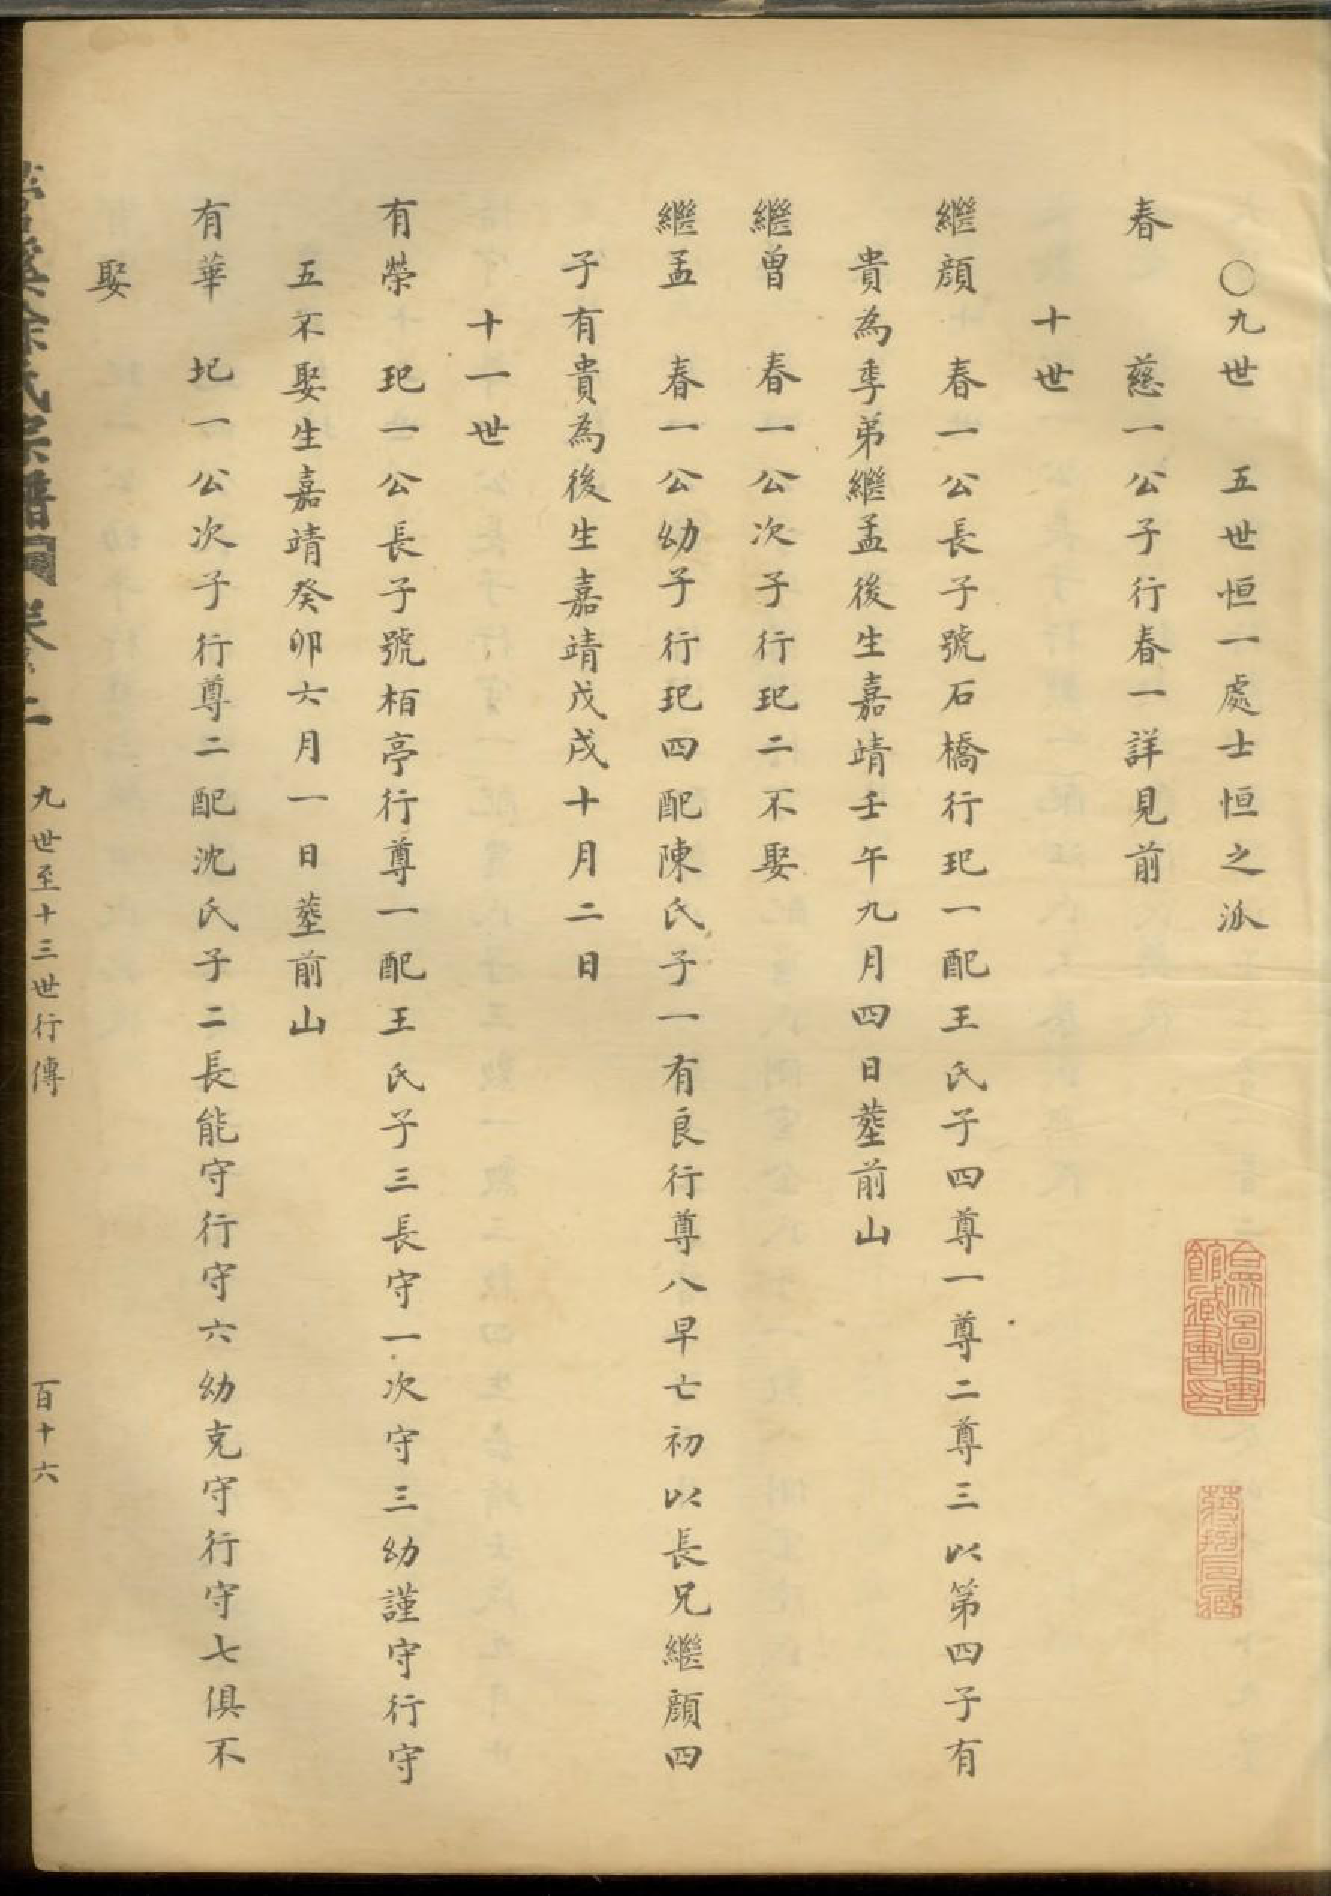 〇九世　五世恒一處士恒之派
春　慈一公子行春一詳見前
十世
繼顏　春一公長子號石橋行玘一配王氏子四尊一尊二尊三以第四子有
貴為季弟繼孟後生嘉靖壬午九月四日塟前山
繼曾　春一公次子行玘二不娶
繼孟　春一公幼子行玘四配陳氏子一有良行尊八早亡初以長兄繼顏四
子有貴為後生嘉靖戊戌十月二日
十一世
有榮　玘一公長子號栢亭行尊一配王氏子三長守一次守三幼謹守行守
五不娶生嘉靖癸卯六月一日塟前山
有華　玘一公次子行尊二配沈氏子二長能守行守六幼克守行守七俱不
娶
徐氏宗譜圖卷之二　九世至十三世行傳　百十六
圖書
館藏書